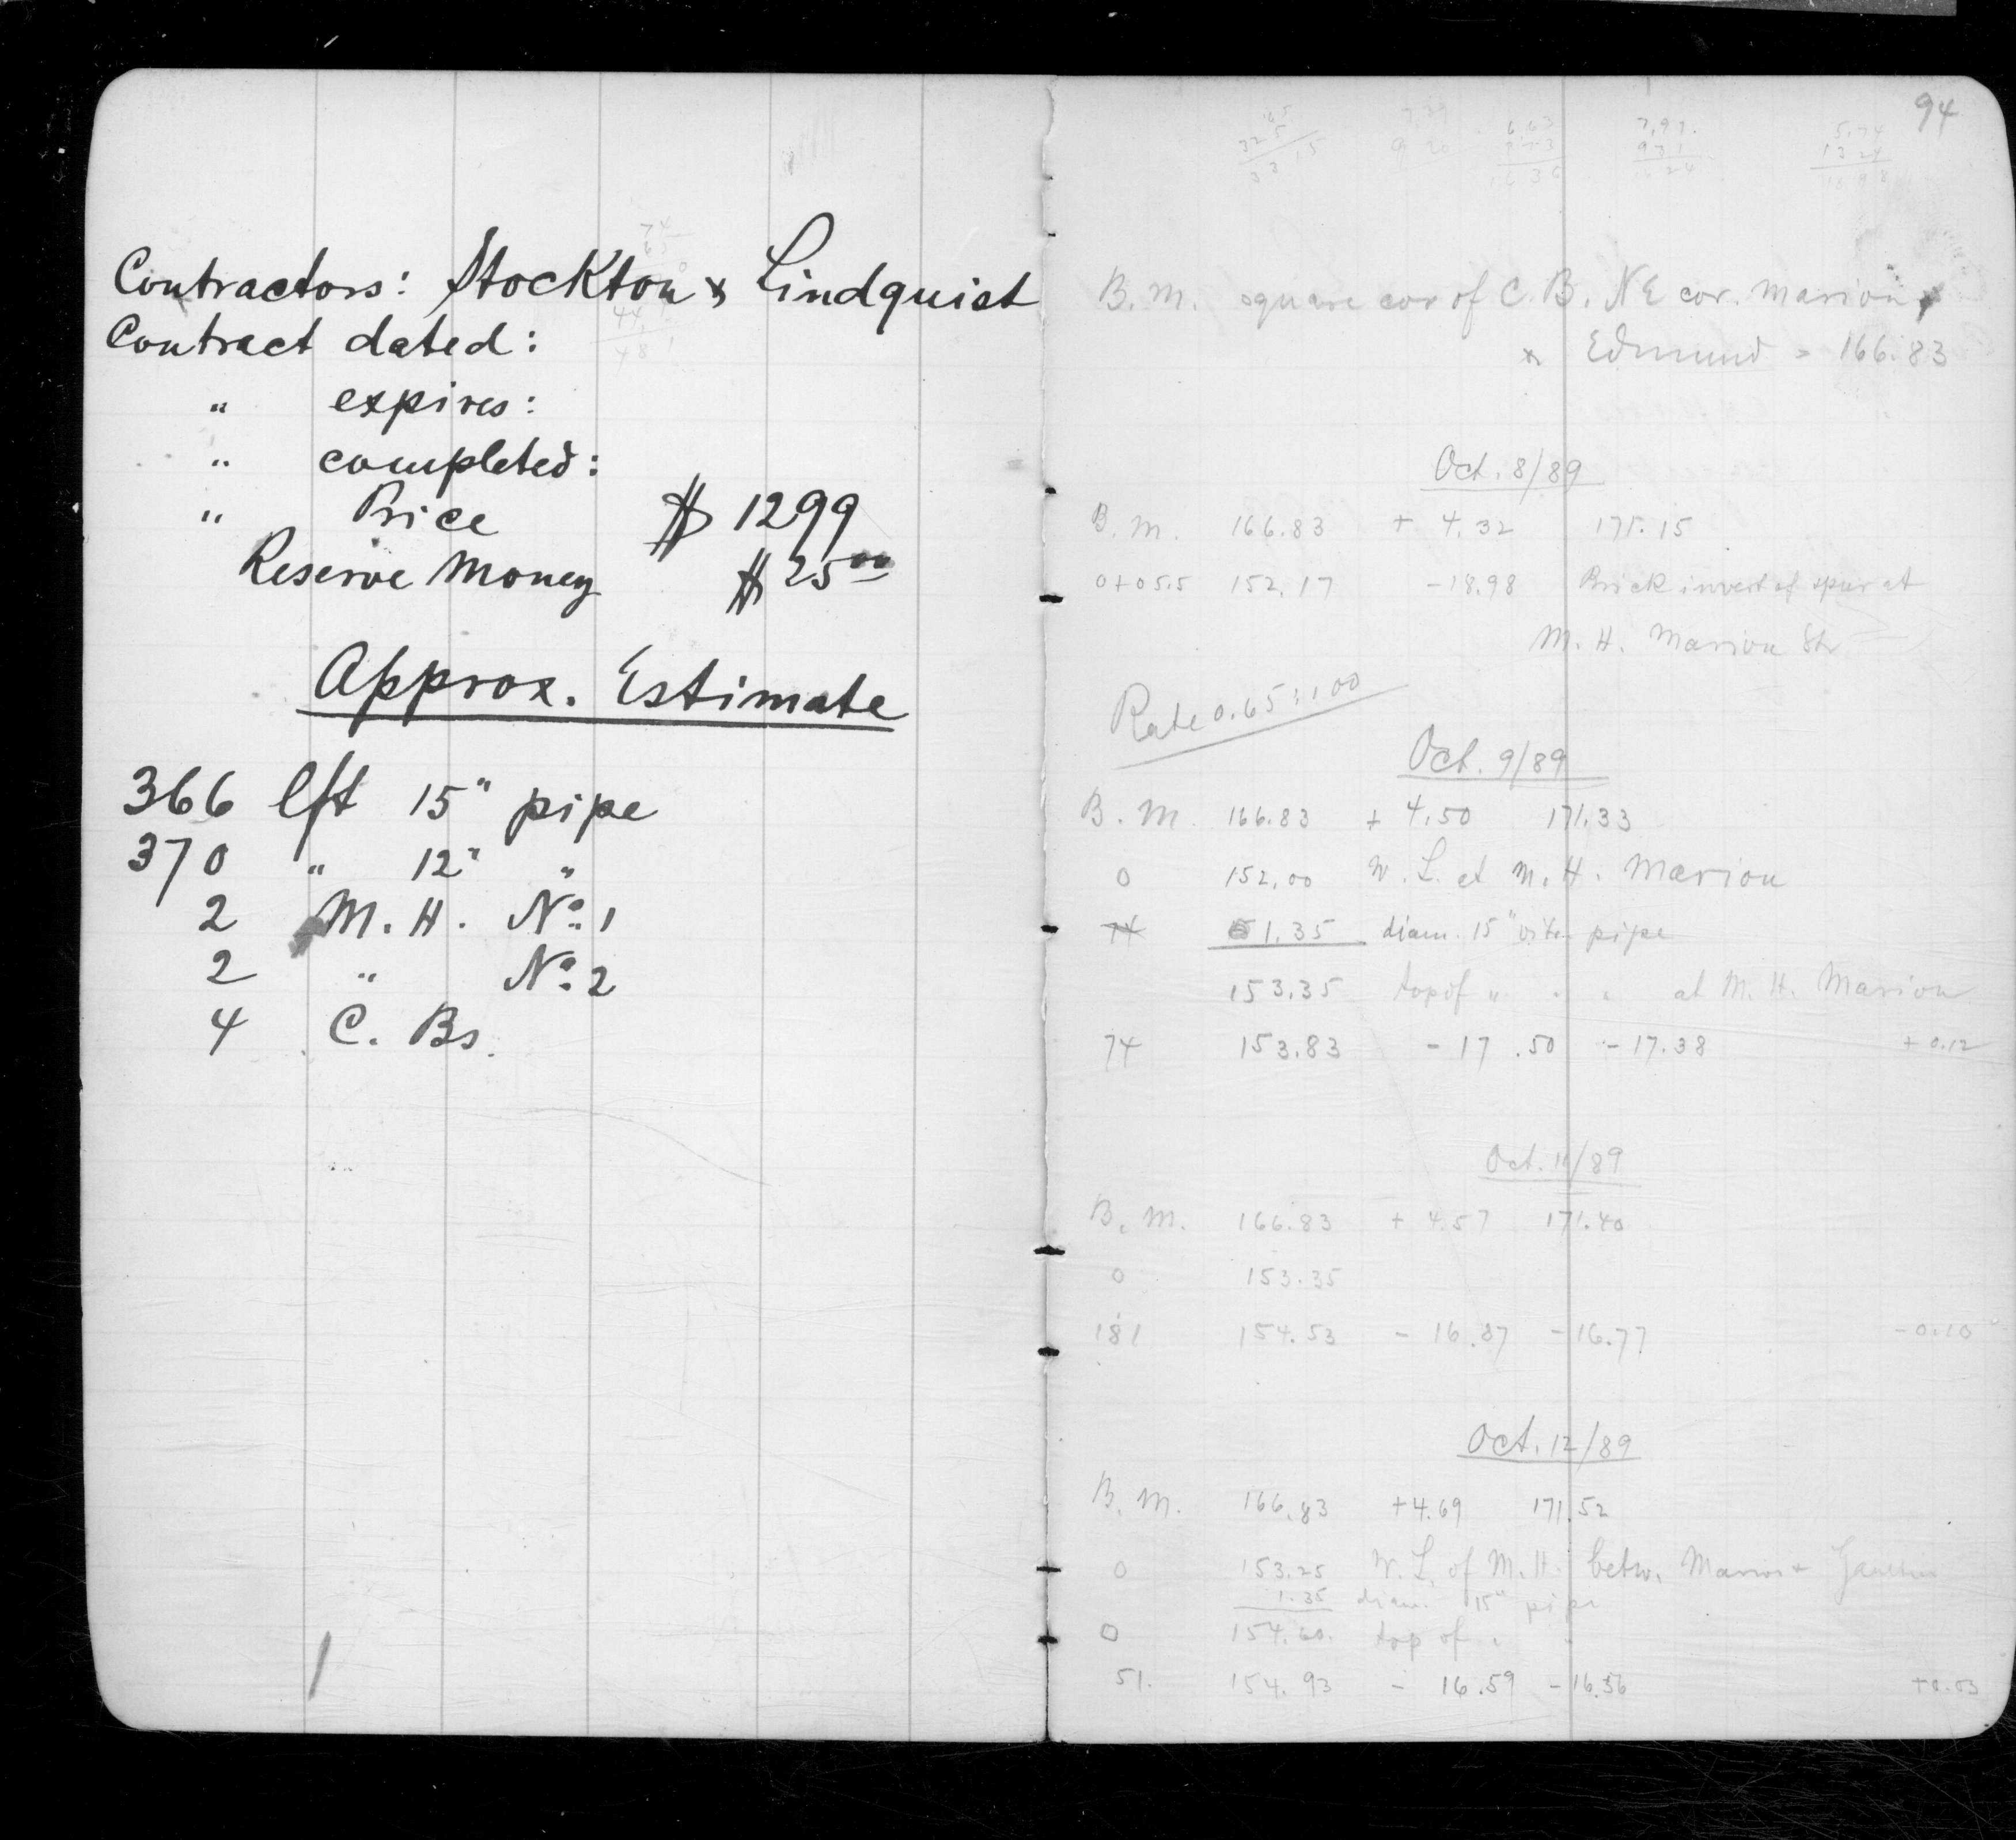 Contractors: Stockton & Lindquist
Contract dated:
" expires:
" completed:
" Price $ 1299
Reserve Money $ 25 00
Approx. Estimate
366 lft 15" pipe
370 " 12" "
2 M. H. No. 1
2 " No. 2
4 C. Bs.
94
B. M. square cor of C. B. NE cor. Marion
& Edmund = 166.83
Oct. 8/89
B. M. 166.83 + 4.32 171.15
0+05.5 152.17 -18.98 Brick invert of spur at
M. H. Marion Str
Rate 0.65:100
Oct. 9/89
B. M. 166.83 + 4.50 171.33
0 152.00 W. L. at M. H. Marion
74 1.35 diam. 15" vitr. pipe
153.35 top of " " " at M. H. Marion
74 153.83 - 17.50 - 17.38 + 0.12
Oct. 11/89
B. M. 166.83 + 4.57 171.40
0 153.35
181 154.53 - 16.87 - 16.77 - 0.10
Oct. 12/89
B. M. 166.83 +4.69 171.52
0 153.25 W. L. of M. H. betw. Marion &
1.35 diam. 15" pipe
0 154.60 top of " "
51. 154.93 - 16.59 - 16.56 +0.03